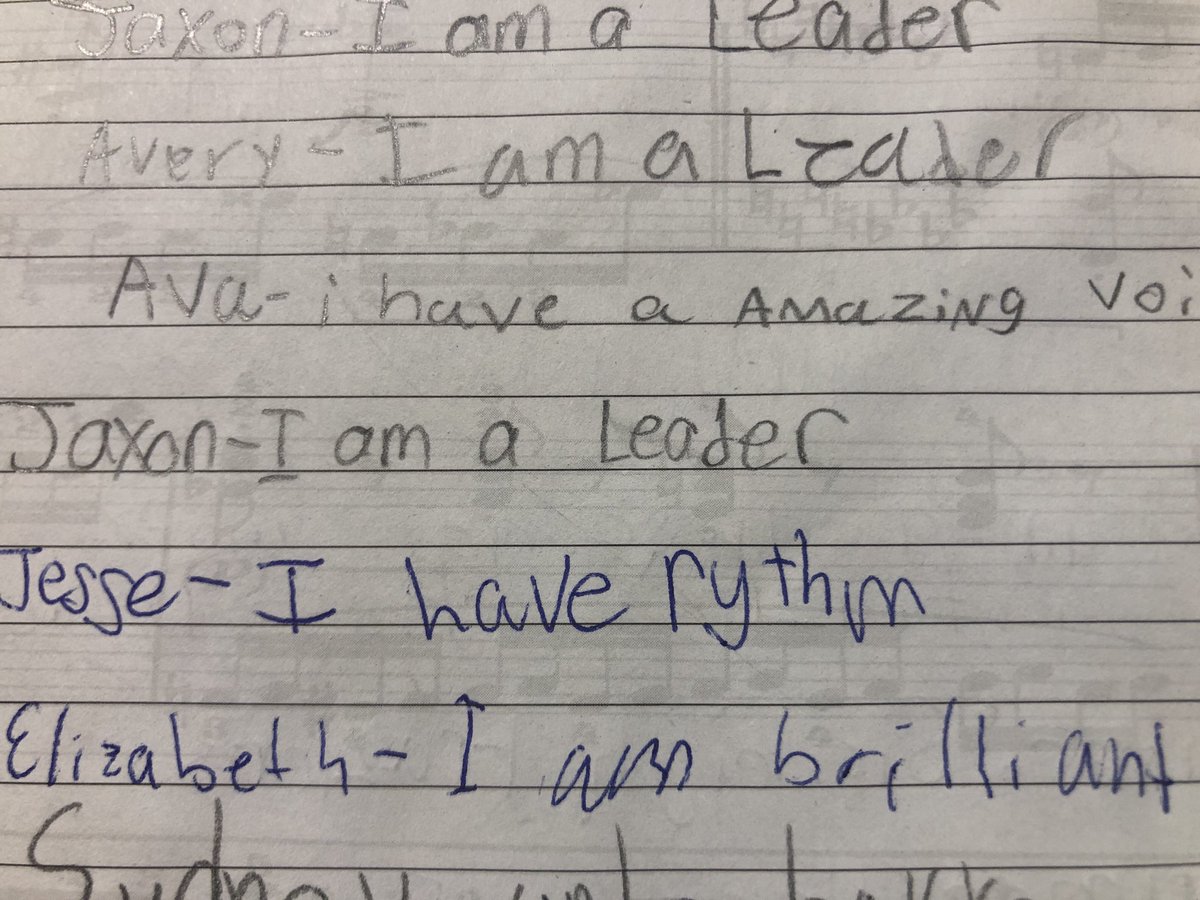 Jaxon-I am a Leader
Avery-I am a Leader
Ava-i have a AMaziNg voi
Jaxon-I am a Leader
Jesse-I have rythm
Elizabeth-I am brilliant
Sydney